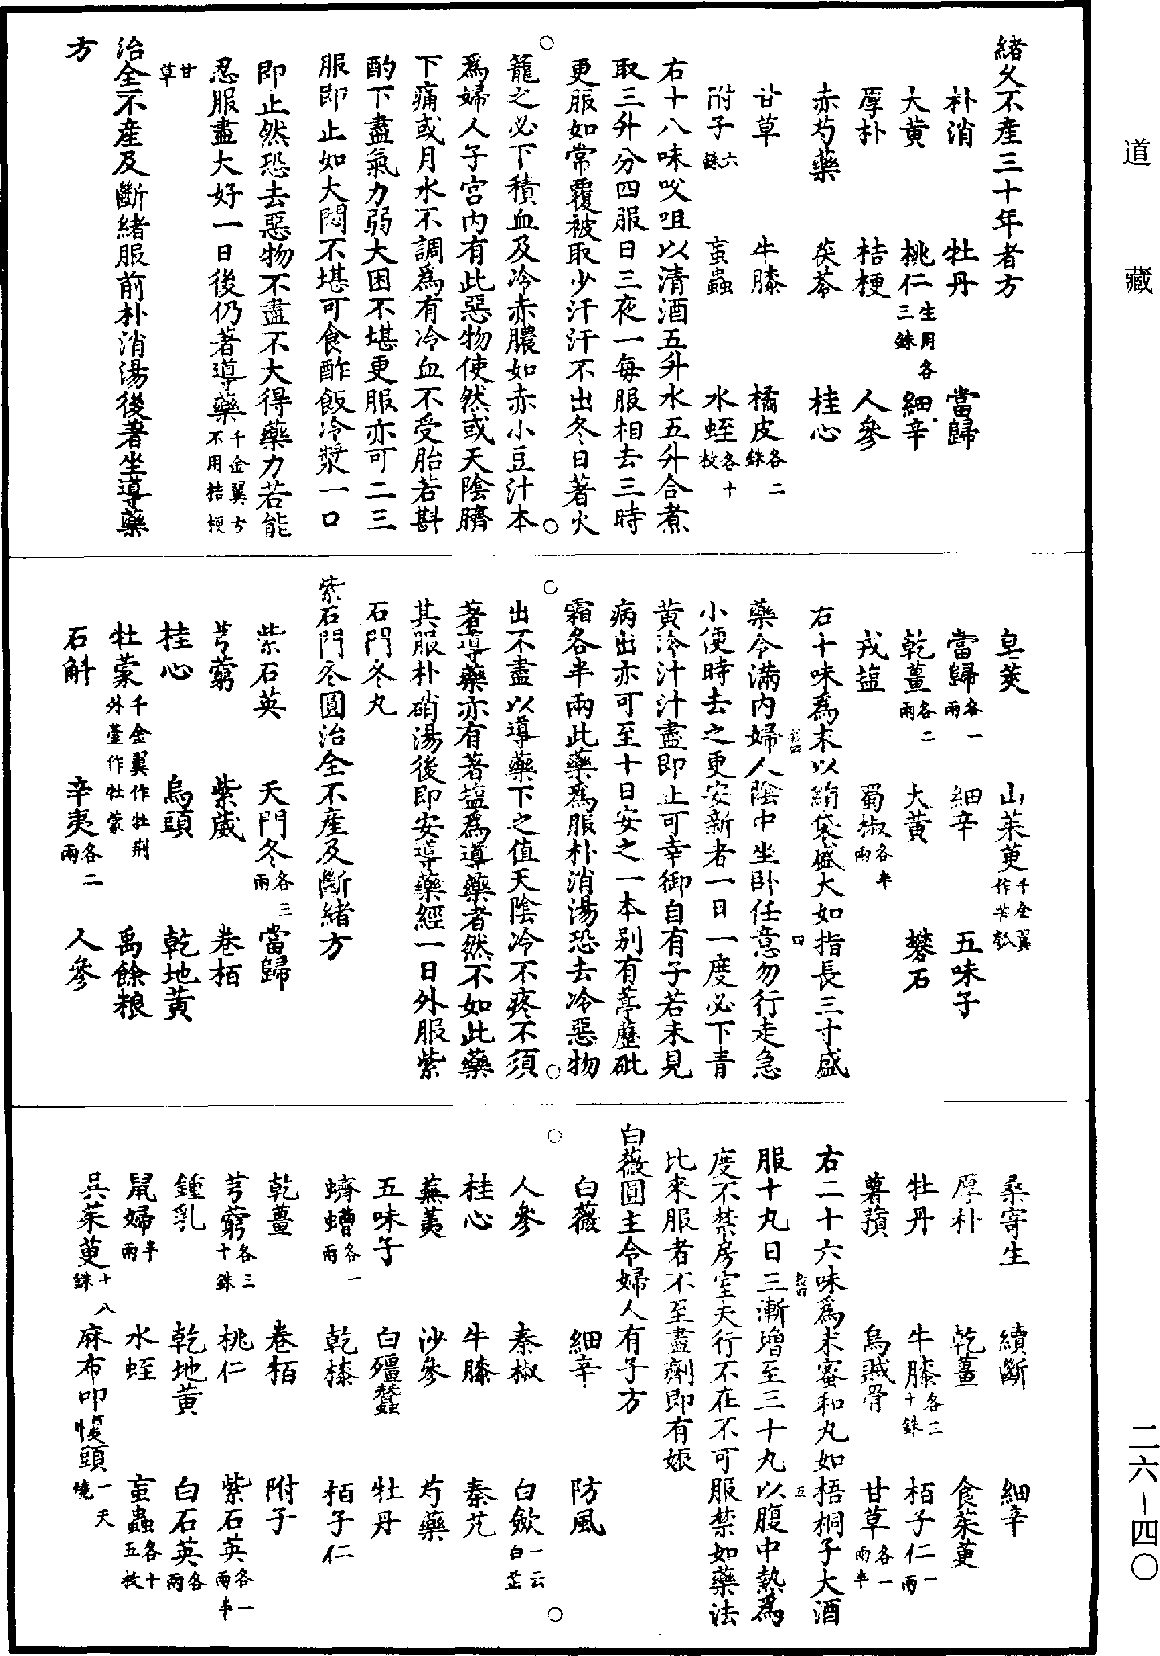 道藏
緒久不產三十年者方
朴消 牡丹 當歸
大黃 桃仁生用各三銖 細辛
厚朴 桔梗 人參
赤芍藥 茯苓 桂心
甘草 牛膝 橘皮各二銖
附子六銖 䖟蟲 水蛭各十枚
右十八味㕮咀以清酒五升水五升合煮
取三升分四服日三夜一每服相去三時
更服如常覆被取少汗汗不出冬日著火
籠之必下積血及冷赤膿如赤小豆汁本
爲婦人子宮內有此惡物使然或天陰臍
下痛或月水不調爲有冷血不受胎若斟
酌下盡氣力弱大困不堪更服亦可二三
服即止如大悶不堪可食酢飯冷漿一口
即止然恐去惡物不盡不大得藥力若能
忍服盡大好一日後仍著導藥千金翼方不用桔梗
甘草
治全不產及斷緒服前朴消湯後著坐導藥
方
皂莢 山茱萸千金翼作苦瓠 五味子
當歸各一兩 細辛
乾薑各二兩 大黃 礬石
戎鹽 蜀椒各半兩
右十味爲末以絹袋盛大如指長三寸盛
藥令滿內婦人陰中坐臥任意勿行走急
小便時去之更安新者一日一度必下青
黃冷汁汁盡即止可幸御自有子若未見
病出亦可至十日安之一本別有葶藶砒
霜各半兩此藥爲服朴消湯恐去冷惡物
出不盡以導藥下之值天陰冷不疼不須
著導藥亦有著鹽爲導藥者然不如此藥
其服朴硝湯後即安導藥經一日外服紫
石門冬丸
紫石門冬圓治全不產及斷緒方
紫石英 天門冬各三兩 當歸
芎藭 紫葳 卷栢
桂心 烏頭 乾地黃
牡蒙千金翼作牡荆外臺作牡蒙 禹餘粮
石斛 辛夷各二兩 人參
桑寄生 續斷 細辛
厚朴 乾薑 食茱萸
牡丹 牛膝各二十銖 栢子仁一兩
薯蕷 烏賊骨 甘草各一兩半
右二十六味爲末蜜和丸如梧桐子大酒
服十丸日三漸增至三十丸以腹中熱爲
度不禁房室夫行不在不可服禁如藥法
比來服者不至盡劑即有娠
白薇圓主令婦人有子方
白薇 細辛 防風
人參 秦椒 白歛一云白芷
桂心 牛膝 秦艽
蕪荑 沙參 芍藥
五味子 白殭蠶 牡丹
蠐螬各一兩 乾漆 栢子仁
乾薑 卷栢 附子
芎藭各三十銖 桃仁 紫石英各一兩半
鍾乳 乾地黃 白石英各二兩
鼠婦半兩 水蛭 䖟蟲各十五枚
吳茱萸十八銖 麻布叩㡋頭一尺燒
二六—四〇